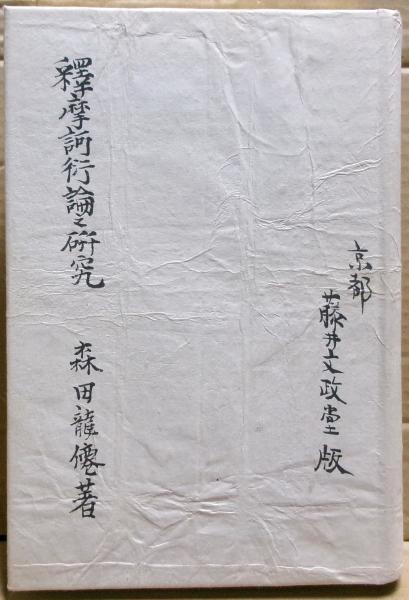 京都
藤井文政堂版
釋摩訶衍論之研究
森田龍僊著